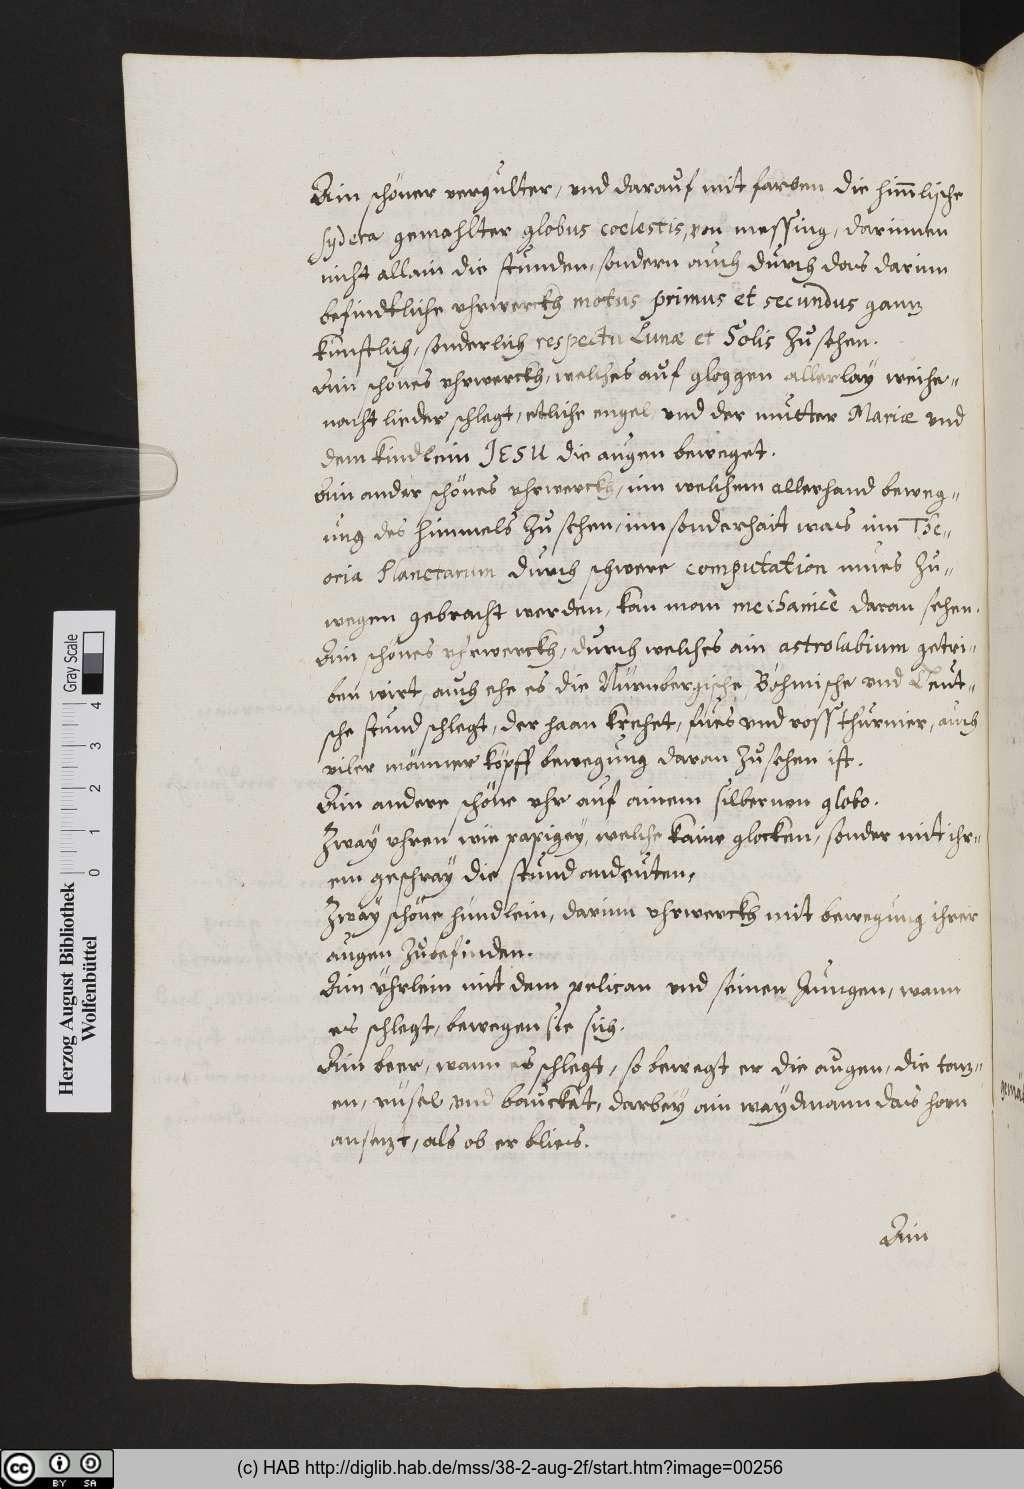 Ain schöner vergulter, vnd darauf mit farben die himlische
sydera gemahlter globus coelestis, von messing, darinnen
nicht allain die stunden, sondern auch durch das darinn
befindtliche vhrwerckh motus primus et secundus gantz
künstlich, sonderlich respectu Lunæ et Solis zu sehen.
Ain schönes vhrwerckh, welches auf gloggen allerlay weihe-
nacht lieder schlegt, etliche engel, vnd der mutter Mariæ vnd
dem kindlein JESU die augen beweget.
Ain ander schönes vhrwerckh, inn welchem allerhand beweg-
ung des himmels zu sehen, inn sonderhait was inn The-
oria Planetarum durch schwere computation mues zu-
wegen gebracht werden, kan man mechanicè daran sehen.
Ain schönes vhrwerckh, durch welches ain astrolabium getri-
ben wirt, auch ehe es die Nürnbergische, Böhmische vnd Teut-
sche stund schlegt, der haan krehet, fues vnd ross thurnier, auch
viler männer köpff bewegung daran zu sehen ist.
Ain andere schöne vhr auf ainem silbernen globo.
Zway vhren wie papigey, welche kaine glocken, sonder mit ihr-
em geschray die stund andeuten,
Zway schöne hündlein, darinn vhrwerckh mit bewegung ihrer
augen zubefinden.
Ain vhrlein mit dem pelican vnd seinen jungen, wann
es schlegt, bewegen sie sich.
Ain beer, wann es schlegt, so bewegt er die augen, die tatz-
en, rüsel, vnd bauckht, darbey ain waydmann das horn
ansetzt, als ob er blies.
Ain
gemäl
Herzog August Bibliothek
Wolfenbüttel
Gray Scale
0 1 2 3 4
cc BY SA
(c) HAB http://diglib.hab.de/mss/38-2-aug-2f/start.htm?image=00256